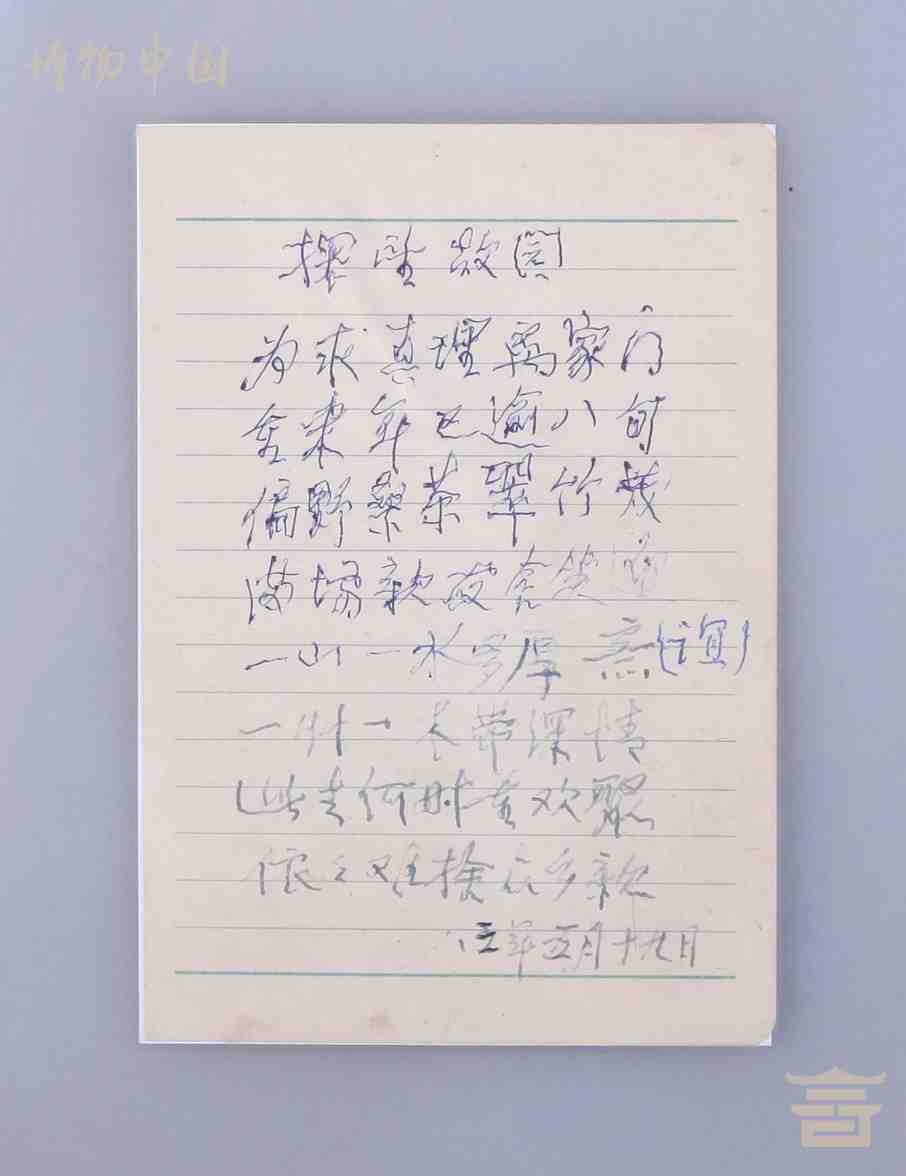 博物中国
探望故园
为求真理离家门
重来年已逾八旬
偏野桑茶翠竹茂
满场亲故含笑迎
一山一水多厚意(谊)
一草一木带深情
此去何时重欢聚
依依难捨众乡亲
八三年五月十九日